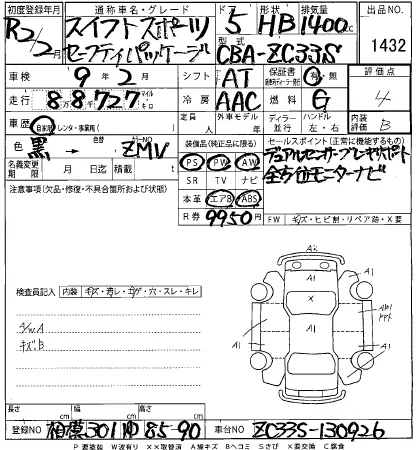 初度登録年月 通称車名・グレード ドア 形状 排気量 出品NO
R2/2月 スイフトスポーツ セーフティパッケージ 5 HB 1400cc 1432
型式 CBA-ZC33S
車検 9年2月 シフト AT 保証書 有 無 評価点 4
走行 88727 マイル km 冷房 AAC 燃料 G
車歴 自家用 レンタ・事業用( ) 定員 人 外車モデル 年 ディーラー 並行 ハンドル 左・右 内装評価 B
色 黒 色替 カラーNO ZMV 装備品(純正品に限る) セールスポイント(正常に機能するもの)
PS PW AW デュアルセンサーブレーキサポート
名義変更期限 月 日迄 積載 t SR TV ナビ 全方位モニターナビ
注意事項(欠品・修復・不具合箇所および状態) 本革 エアB ABS
R券 9950円 FW キズ・ヒビ割・リペア跡・X要
検査員記入 内装 キズ・汚レ・コゲ・穴・スレ・キレ
A2
A1 A1 A1
X
A1 A1
キズ.B
長さ cm 幅 cm 高さ cm
登録NO 相模301 85-90 車台NO ZC33S-130926
P要塗装 W波有り ××取替済 A線キズ Bヘコミ Sさび X要交換 C腐食